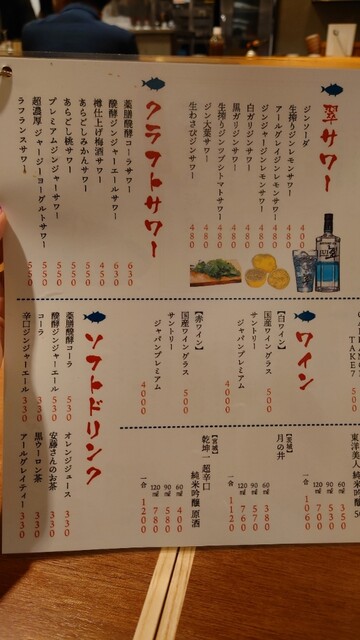 翠サワー
ジンソーダ 400
生搾りジンレモンサワー 480
アールグレイジンレモンサワー 480
ジンジャージンレモンサワー 480
白ガリジンサワー 480
黒ガリジンサワー 480
生搾りジンプシトマトサワー 480
ジン大葉サワー 480
生わさびジンサワー 480
クラフトサワー
薬膳醗酵コーラサワー 630
醗酵ジンジャーエールサワー 630
樽仕上げ梅酒サワー 450
あらごしみかんサワー 500
あらごし桃サワー 550
プレミアムジンジャーサワー 550
超濃厚 ジャージーヨーグルトサワー 550
ラフランスサワー 550
TAKE7
500
ワイン
【白ワイン】
国産ワイングラス 500
サントリー
ジャパンプレミアム 4000
【赤ワイン】
国産ワイングラス 500
サントリー
ジャパンプレミアム 4000
ソフトドリンク
薬膳醗酵コーラ 530
醗酵ジンジャーエール 530
コーラ 330
辛口ジンジャーエール 330
オレンジジュース 330
安藤さんのお茶 530
黒ウーロン茶 330
アールグレイティー 330
東洋美人 純米吟醸 50
60㎖ 350
90㎖ 530
120㎖ 700
一合 1060
【茨城】
月の井
60㎖ 380
90㎖ 570
120㎖ 760
一合 1120
【宮城】
乾坤一 超辛口
純米吟醸 原酒
60㎖ 400
90㎖ 580
120㎖ 780
一合 1200